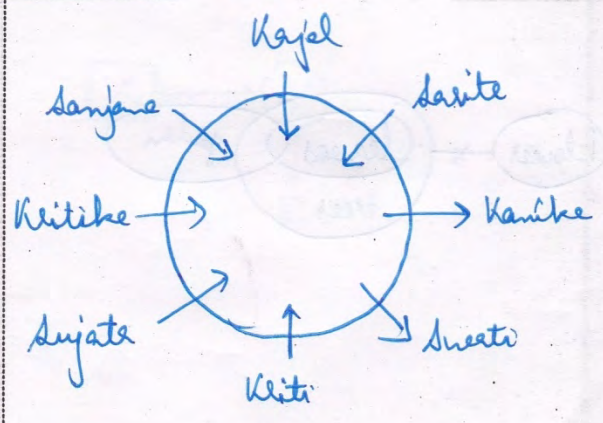 Kajal
Sanjana
Kritika Kanika
Sujata Swati
Kriti